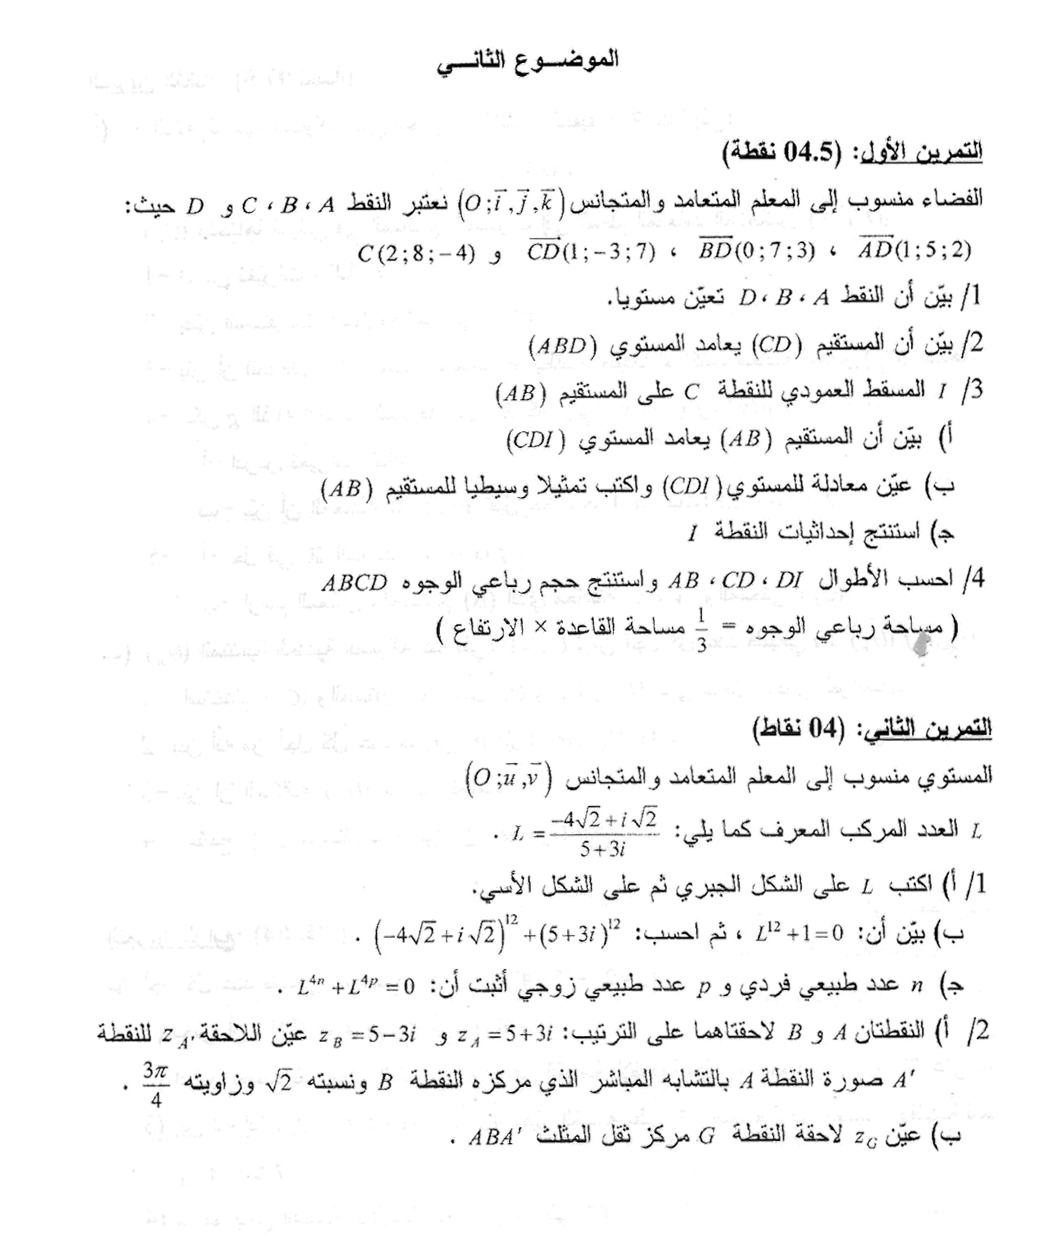 الموضــوع الثانــي
التمرين الأول: (04.5 نقطة)
الفضاء منسوب إلى المعلم المتعامد والمتجانس (O;i⃗,j⃗,k⃗) نعتبر النقط A ، B ، C و D حيث:
AD⃗(1;5;2) ، BD⃗(0;7;3) ، CD⃗(1;-3;7) و C(2;8;-4)
1/ بيّن أن النقط A ، B ، D تعيّن مستويا.
2/ بيّن أن المستقيم (CD) يعامد المستوي (ABD)
3/ I المسقط العمودي للنقطة C على المستقيم (AB)
أ) بيّن أن المستقيم (AB) يعامد المستوي (CDI)
ب) عيّن معادلة للمستوي (CDI) واكتب تمثيلا وسيطيا للمستقيم (AB)
ج) استنتج إحداثيات النقطة I
4/ احسب الأطوال DI ، CD ، AB واستنتج حجم رباعي الوجوه ABCD
( مساحة رباعي الوجوه = 1/3 مساحة القاعدة × الارتفاع )
التمرين الثاني: (04 نقاط)
المستوي منسوب إلى المعلم المتعامد والمتجانس (O;u⃗,v⃗)
L العدد المركب المعرف كما يلي: L = (-4√2+i√2)/(5+3i) .
1/ أ) اكتب L على الشكل الجبري ثم على الشكل الأسي.
ب) بيّن أن: L¹²+1=0 ، ثم احسب: (-4√2+i√2)¹²+(5+3i)¹² .
ج) n عدد طبيعي فردي و p عدد طبيعي زوجي أثبت أن: L⁴ⁿ+L⁴ᵖ=0 .
2/ أ) النقطتان A و B لاحقتاهما على الترتيب: z_A=5+3i و z_B=5-3i عيّن اللاحقة z_A' للنقطة
A' صورة النقطة A بالتشابه المباشر الذي مركزه النقطة B ونسبته √2 وزاويته 3π/4 .
ب) عيّن z_G لاحقة النقطة G مركز ثقل المثلث ABA' .